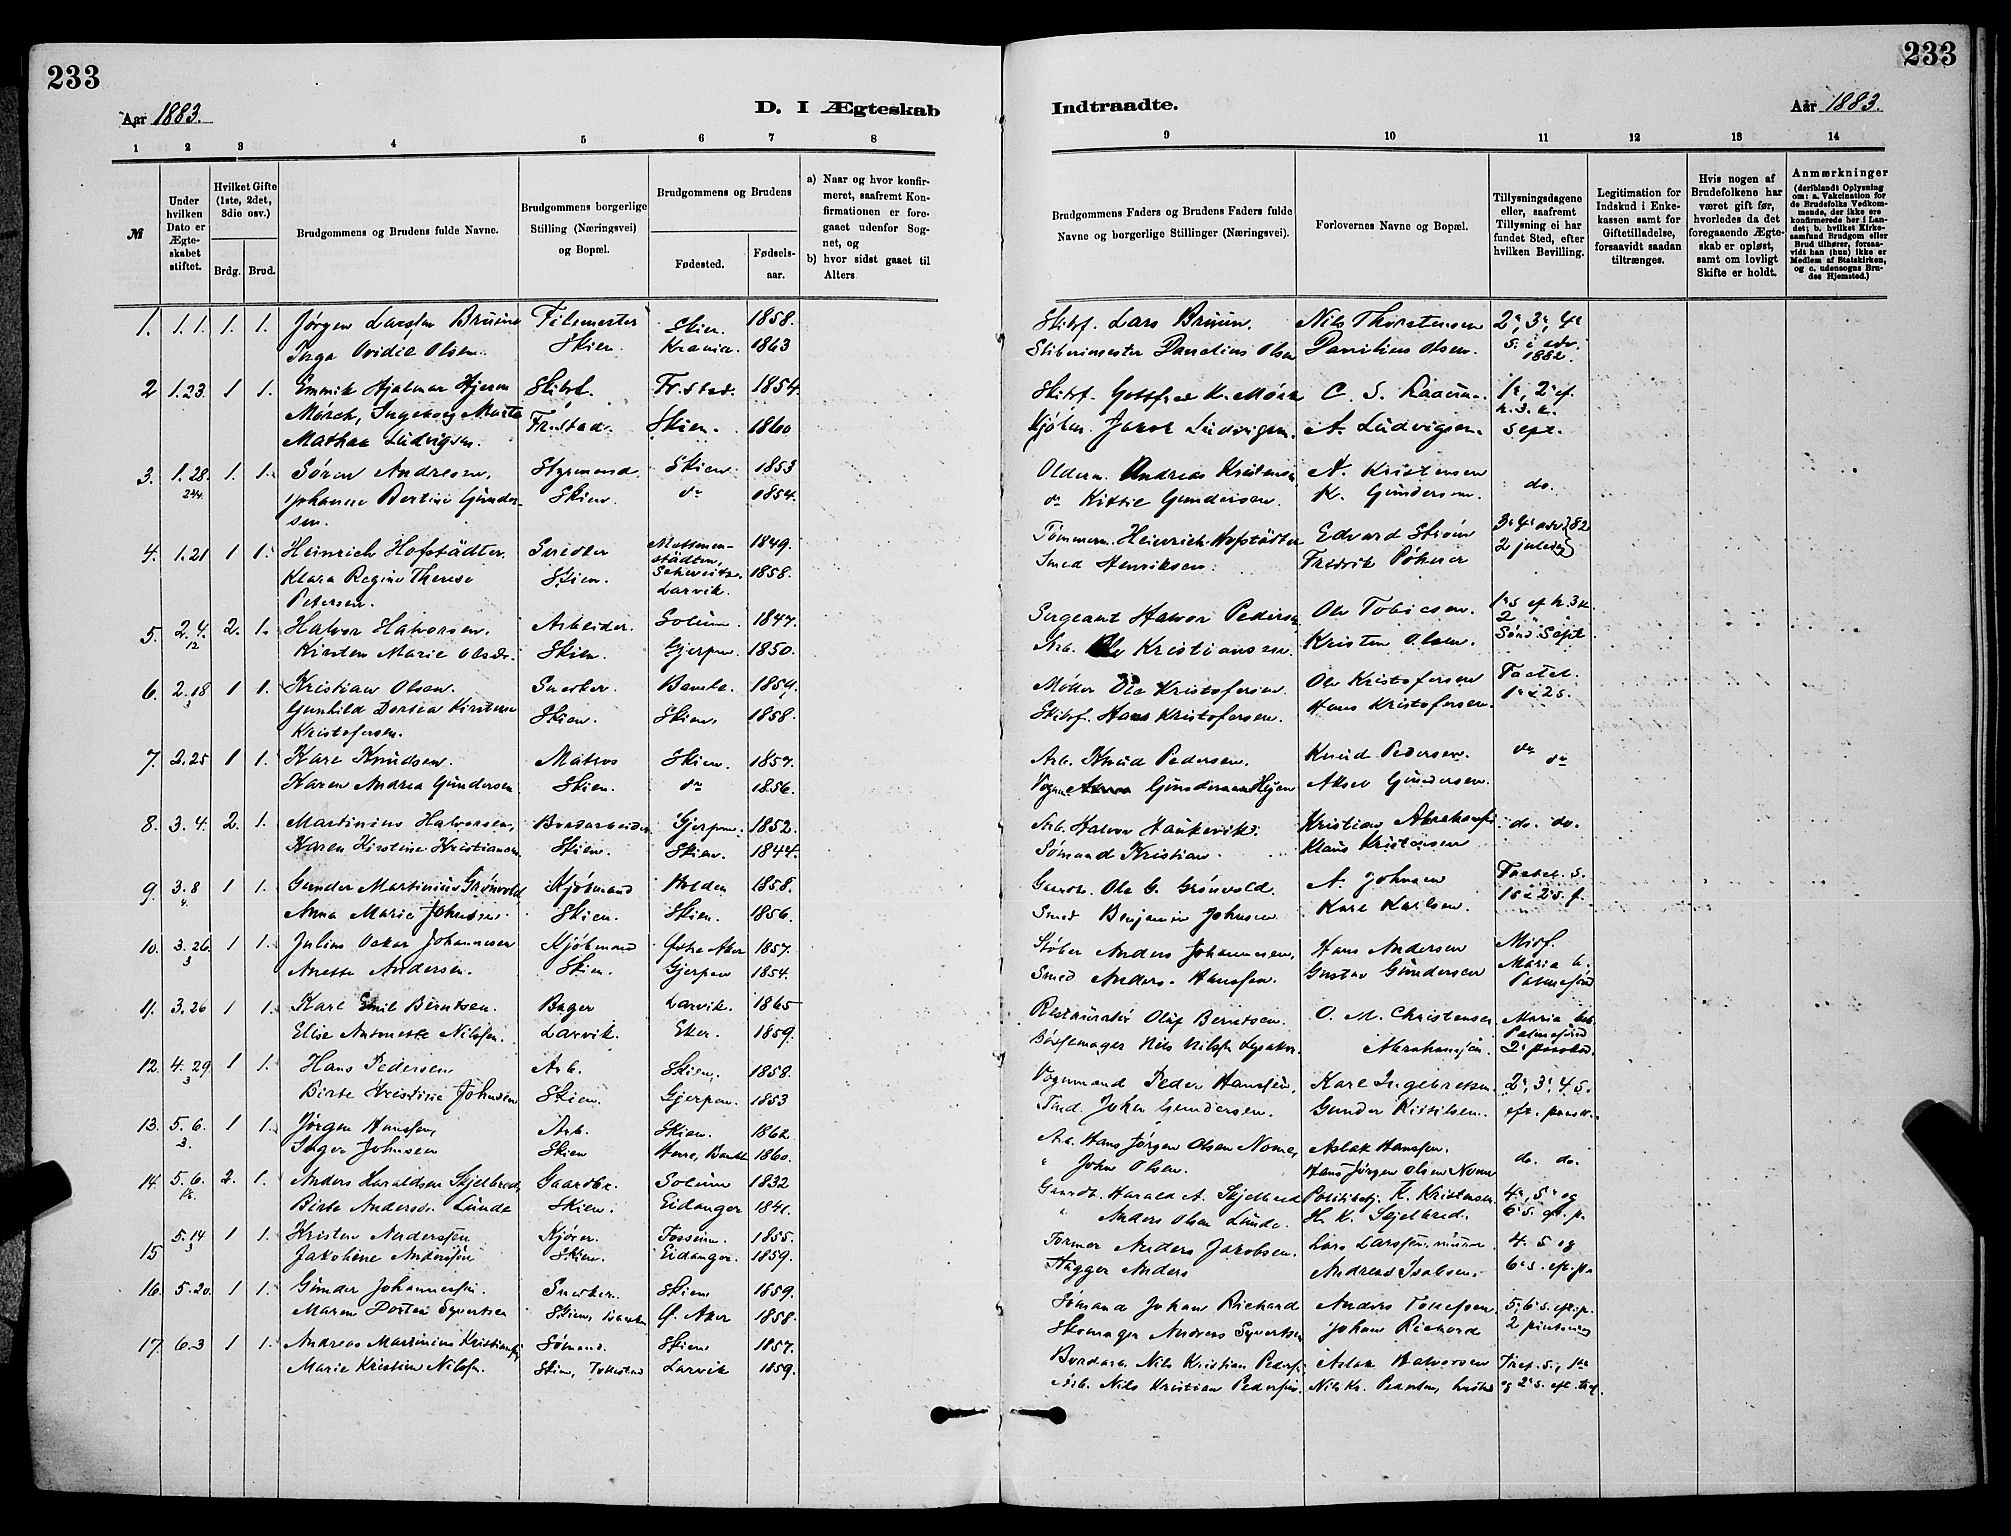 233
Aar 1883.
D. I Ægteskab
1 2 3 4 5 6 7 8
№
Under hvilken Dato er Ægteskabet stiftet.
Hvilket Gifte (1ste, 2det, 3die osv.)
Brdg. Brud.
Brudgommens og Brudens fulde Navne.
Brudgommens borgerlige Stilling (Næringsvei) og Bopæl.
Brudgommens og Brudens
Fødested. Fødselsaar.
a) Naar og hvor konfirmeret, saafremt Konfirmationen er foregaaet udenfor Sognet, og
b) hvor sidst gaaet til Alters
1. 1.1. 1. 1. Jørgen Larsen Bruun Skien. 1858.
Inga Ovidie Olsen. Skien. Krania. 1863
2 1.23. 1 1. Hjalmar Skibsf. Fr.stad. 1854.
Mørch, Ingeborg Marta Fr.stad. Skien. 1860
Mathea Ludvigsen.
3. 1.28. 1. 1. Søren Andresen, Styrmand. Skien. 1853
Johanne Bertine Gunder- Skien. do 1854.
sen.
4. 1.21 1 1. Heinrich Hofstädter. Snedker 1849.
Klara Regine Therese Skien. Schweitz. 1858.
Petersen. Larvik.
5. 2.4. 2. 1. Halvor Halvorsen. Arbeider. Solum. 1847.
12 Kirsten Marie Olsdr. Skien. Gjerpen. 1850.
6. 2.18 1 1. Kristian Olsen. Snedker. Bamle. 1859.
3 Gunhild Dorthea Kirstine Skien. Skien. 1858.
Kristofersen.
7. 2.25 1 1. Karl Knudsen. Matros Skien. 1857.
Karen Andrea Gundersen Skien. do 1856.
8. 3.4. 2. 1. Martinius Halvorsen, Bordarbeider Gjerpen. 1852.
Karen Kirstine Kristiansen Skien. Skien. 1844.
9. 3.8 1 1. Gunder Martinius Grønvold Kjøbmand Holden 1858.
4. Anna Marie Johnsen. Skien. Skien. 1856.
10. 3.26. 1 1. Julius Oskar Johannesen Kjøbmand Østre Aker 1857.
3 Anette Andersen. Skien. Gjerpen 1854.
11. 3.26 1 1. Karl Emil Berntsen. Bager Larvik. 1865
Elise Antonette Nilssen. Larvik. Eker. 1859.
12. 4.29 1 1. Hans Pedersen Arb. Skien. 1858.
3 Birte Kristine Johnsen Skien. Gjerpen. 1853
13. 5.6. 1 1. Jørgen Hanssen, Arb. Skien. 1862.
3. Inger Johnsen Skien Herre, Bamble 1860.
14. 5.6. 2. 1. Anders Haraldsen Skjelbred, Gaardbr. Solum 1832
Birte Andersdr. Lunde Skien. Eidanger 1841.
5.14 1 1. Kristen Anderssen Kjører. Fossum. 1855.
15 3 Jakobine Anderssen Skien. Eidanger. 1859.
16. 5.20. 1 1. Gunder Johannessen Snedker. Skien 1859.
Maren Syvertsen Skien, Ø. Aker 1858.
17. 6.3 1 1. Andreas Martinius Kristiansen, Sømand. Skien 1857.
Marie Kristine Nilssen. Skien, Larvik 1859.
233
Indtraadte.
Aar 1883.
9 10 11 12 13 14
Brudgommens Faders og Brudens Faders fulde Navne og borgerlige Stillinger (Næringsvei).
Forlovernes Navne og Bopæl.
Tillysningsdagene eller, saafremt Tillysning ei har fundet Sted, efter hvilken Bevilling.
Legitimation for Indskud i Enkekassen samt for Giftetilladelse, forsaavidt saadan tiltrænges.
Hvis nogen af Brudefolkene har været gift før, hvorledes da det foregaaende Ægteskab er opløst, samt om lovligt Skifte er holdt.
Anmærkninger (deriblandt Oplysning om: a. Vakcination for de Brudefolks Vedkommende, der ikke ere konfirmerede her i Landet; b. hvilket Kirkesamfund Brudgom eller Brud tilhører, forsaavids han (hun) ikke er Medlem af Statskirken, og c. udensogns Brudes Hjemsted.)
Skibsf. Lars Bruun. Nils Thorstensen 2', 3', 4'
Danelius Olsen Danilius Olsen. S. i adv. 1882.
Skibsf. Gottfred K. Mørch C. S. Raaum. 1', 2' ef.
Kjøbm. Jacob Ludvigsen. A. Ludvigsen. Sept.
Olderm. Andreas Kristensen A. Kristensen
do Kittil Gundersen. K. Gundersen. do.
Tømmerm. Heinrich Hofstädter Edvard Strøm 3' 4' adv. 82
Smed Henriksen. Fredrik 2 juledag
Sergeant Halvor Pedersen Ole Tobiesen. 1' S ef h. 3 k.
Arb. Ole Kristiansen Kristen Olsen. 2 Sønd. Sept
Møller Ole Kristofersen Ole Kristofersen Fastel.
Skibsf. Hans Kristofersen. Hans Kristofersen. 1' & 2 S.
Arb. Knud Pedersen. Knud Pedersen. do
Vogm. Gundersen Aksel Gundersen. do
Arb. Halvor Haukevik. Kristian Abrahams. do. do.
Sømand Kristian. Klaus Kristensen
Gaardb. Ole G. Grønvold A. Johnsen Fastel. S.
Smed Benjamin Johnsen Karl Karlsen. 1S & 2S. f.
Støber Anders Johannesen, Hans Andersen Misf.
Smed Anders Hanssen. Gustav Gundersen Maria b. Palmesønd
Restauratør Olof Berntsen. O. M. Christensen Maria beb.
Bøssemager Nils Nilssen Abrahamsen. Palmesønd 2' paaskd.
Vognmand Peder Hanssen, Karl Ingebretsen 2', 3', 4 S.
John Gundersen. Gunder Kittilsen. eft. paask.
Arb. Hans Jørgen Olsen Nome, Aslak Hanssen. do. do.
" John Olsen. Hans Jørgen Olsen Nome
Gaardb. Harald A. Skjelbred Politibetj. K. Kristensen 4', 5' og
" Anders Olsen Lunde. H. K. Skjelbred. 6' S. eft. p.
Former Anders Jacobsen. Lars Larssen, 4. 5 og
Hugger Anders Andreas Isaksen. 6' S. eft. p.
Sømand Johan Richard Anders Tollefsen 5, 6 S. eft. p.
Skomager Andreas Syvertsen Johan Richard 2 pintsedag
Bordarb. Nils Kristian Peders. Aslak Halvorsen Tref. S., 1ste
Arb. Nils Kristian Pederssen. Nils Kr. Pedersen, og 2' S. eft. tref.